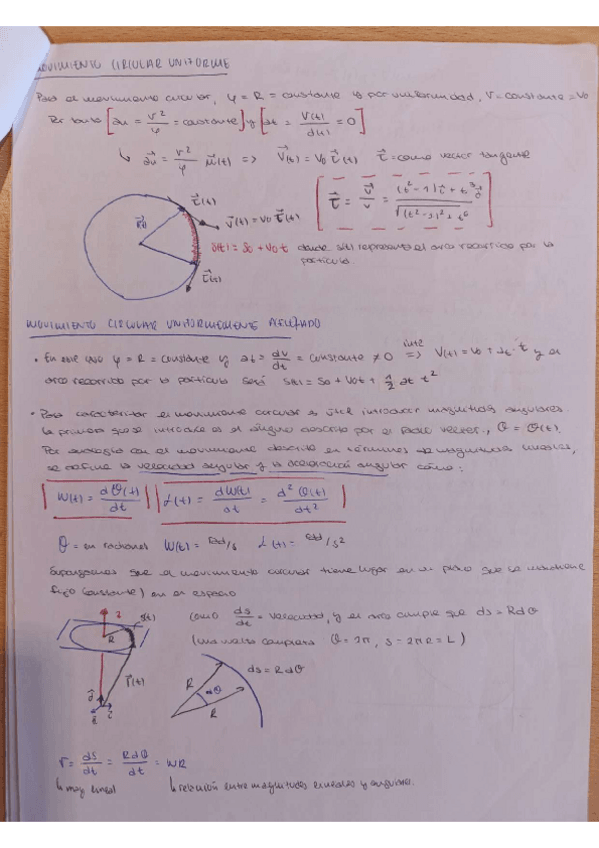 MOVIMIENTO CIRCULAR UNIFORME
Para el movimiento circular, φ = R = constante y por uniformidad, V = constante = V₀
Por tanto [an = v²/φ = constante] y [at = V(t)/d(t) = 0]
↳ an = v²/φ u(t) => V(t) = V₀ τ(t) τ = como vector tangente
τ = v/v = (t² - 1)î + t³ĵ / √((t² - 1)² + t⁶
τ(t)
R(t)
v(t) = V₀ τ(t)
s(t) = S₀ + V₀ t donde s(t) representa el arco recorrido por la
partícula.
τ(t)
MOVIMIENTO CIRCULAR UNIFORMEMENTE ACELERADO
• En este caso φ = R = constante y at = dv/dt = constante ≠ 0 => V(t) = V₀ + at · t y el
arco recorrido por la partícula será S(t) = S₀ + V₀t + 1/2 at t²
• Para caracterizar el movimiento circular es útil introducir magnitudes angulares.
La primera que se introduce es el ángulo descrito por el radio vector, θ = θ(t).
Por analogía con el movimiento descrito en términos de magnitudes lineales,
se define la velocidad angular y la aceleración angular como:
W(t) = dθ(t)/dt α(t) = dW(t)/dt = d²θ(t)/dt²
θ = en radianes W(t) = rad/s α(t) = rad/s²
Supongamos que el movimiento circular tiene lugar en un plano que se mantiene
fijo (constante) en el espacio
Como ds/dt = velocidad, y el arco cumple que ds = R dθ
(una vuelta completa θ = 2π, s = 2πR = L)
R
r(t)
ds = R dθ
R
dθ
R
v = ds/dt = R dθ/dt = WR
↳ mag lineal ↳ relación entre magnitudes lineales y angulares.